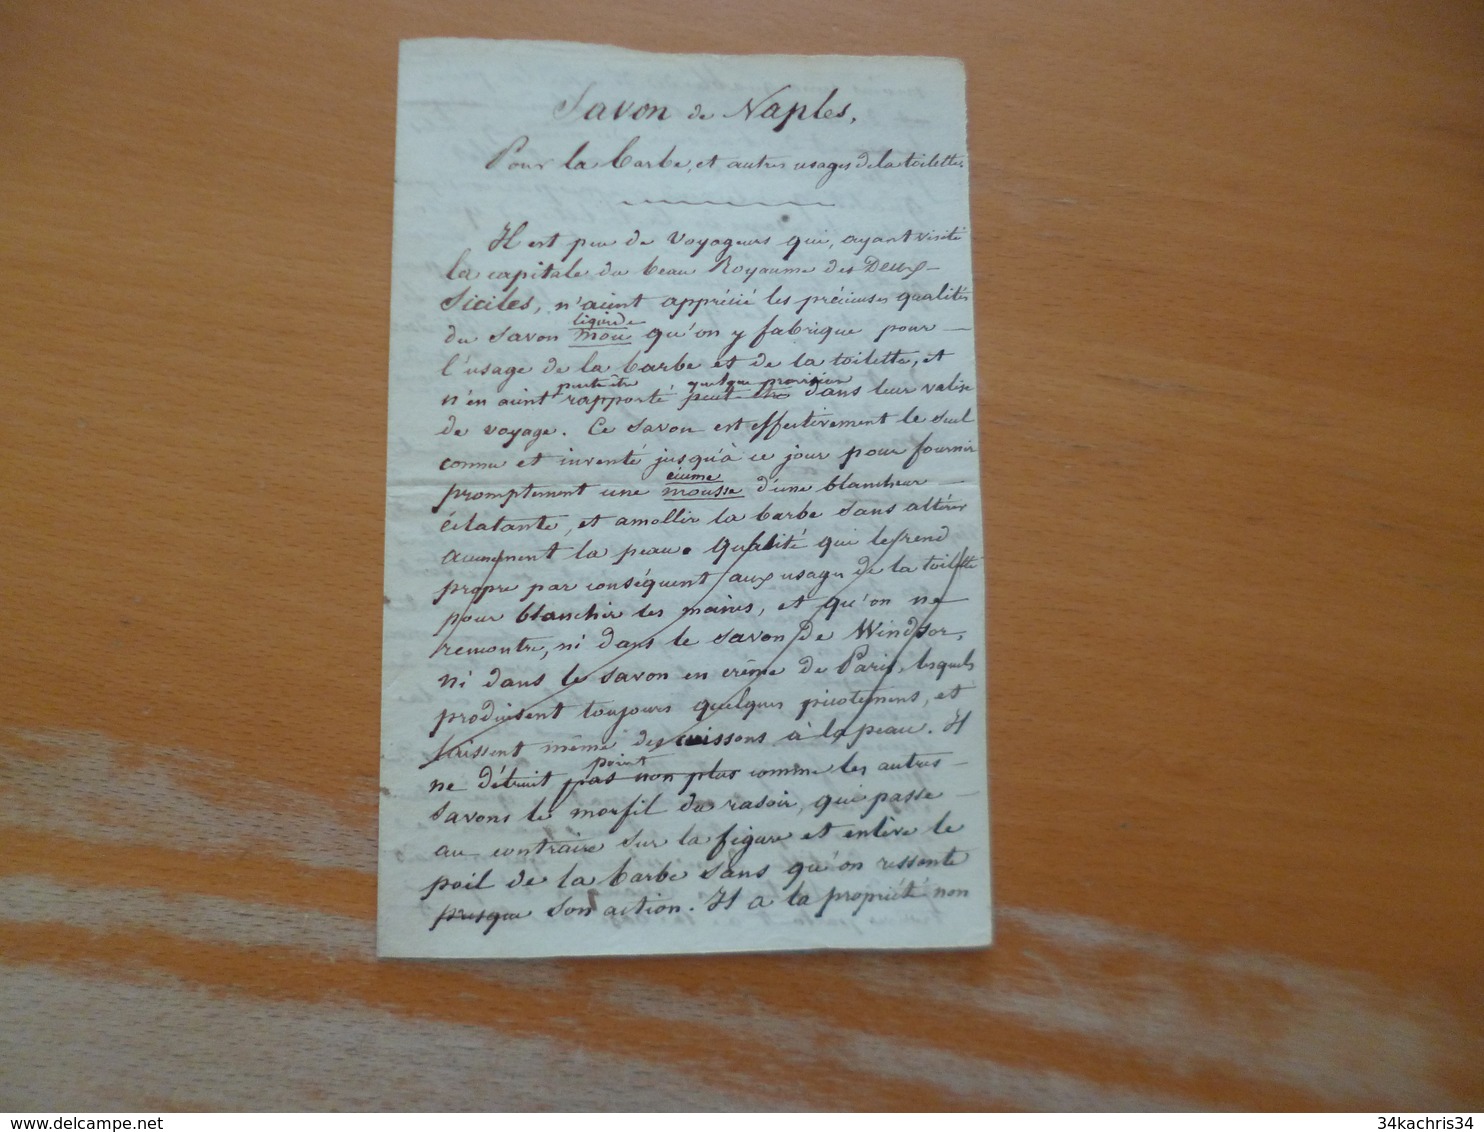 Savon de Naples,
Pour la barbe, et autres usages de la toilette.
Il est peu de Voyageurs qui, ayant visité
la capitale du beau Royaume des Deux-
Siciles, n'aient apprécié les précieuses qualités
liquide
du savon mou qu'on y fabrique pour
l'usage de la barbe et de la toilette, et
peut être quelque provision
n'en aient rapporté peut-être dans leur valise
de voyage. Ce savon est effectivement le seul
connu et inventé jusqu'à ce jour pour fournir
écume
promptement une mousse d'une blancheur
éclatante, et amollir la barbe sans altérer
aucunement la peau. Qualité qui le rend
propre par conséquent aux usages de la toilette
pour blanchir les mains, et qu'on ne
remontre, ni dans le savon de Windsor,
ni dans le savon en crême de Paris, lesquels
produisent toujours quelques picotemens, et
laissent même des cuissons à la peau. Il
point
ne détruit pas non plus comme les autres
savons le morfil du rasoir, qui passe
au contraire sur la figure et enlève le
poil de la barbe sans qu'on ressente
presque son action. Il a la propriété non
34kachris34